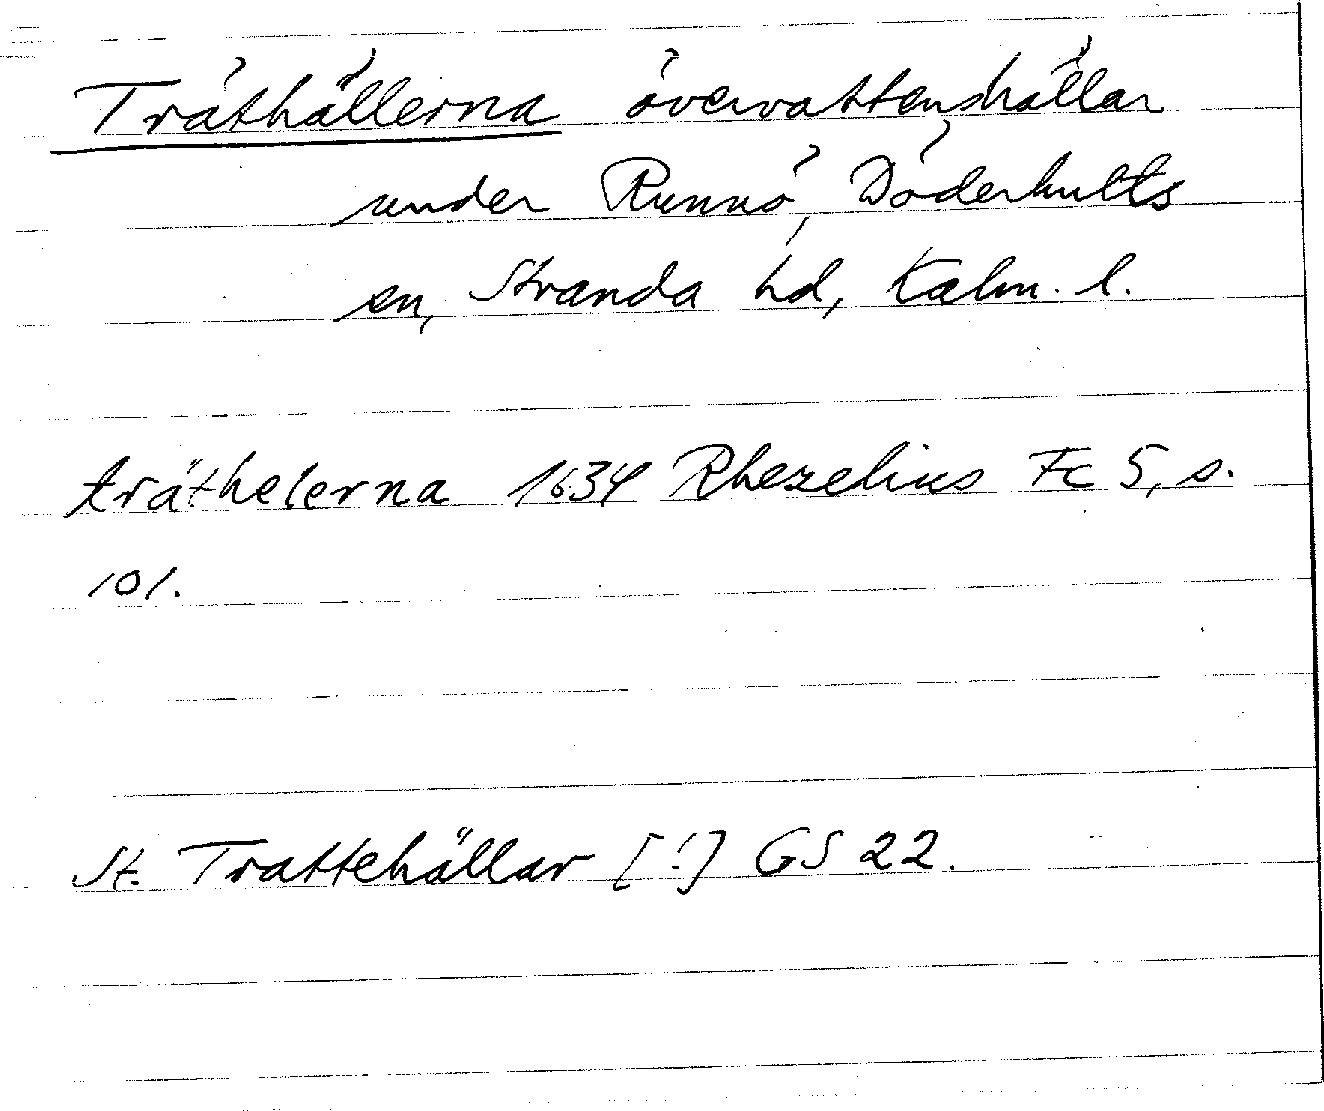 Träthällerna övervattenshällar
under Runnö, Döderhults
sn, Stranda hd, Kalm. l.
träthelerna 1634 Rhezelius Fc 5, s.
101.
St. Trattehällar [!] GS 22.